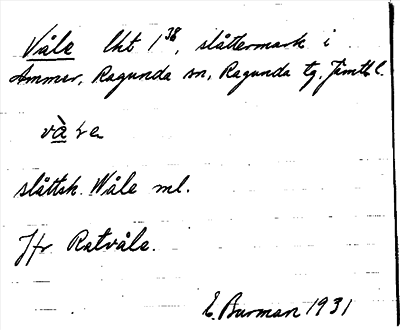 Våle lht 1³⁸, slåttermark i
Ammer, Ragunda sn, Ragunda tg. Jämtl l.
slåttsk. Wåle ml.
Jfr Ratvåle.
E. Burman 1931